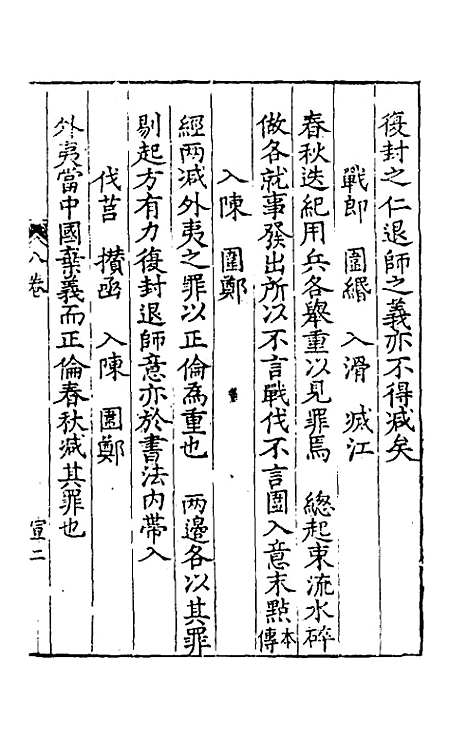 復封之仁退師之義亦不得减矣
戰郎　圍緡　入滑　滅江
春秋迭紀用兵各舉重以見罪焉　總起束流水碎
做各就事發出所以不言戰伐不言圍入意末點本傳
入陳　圍鄭
經两减外夷之罪以正倫為重也　两邊各以其罪
剔起方有力復封退師意亦於書法内帶入
伐莒　攢函　入陳　圍鄭
外夷當中國棄義而正倫春秋减其罪也
八卷
宣二